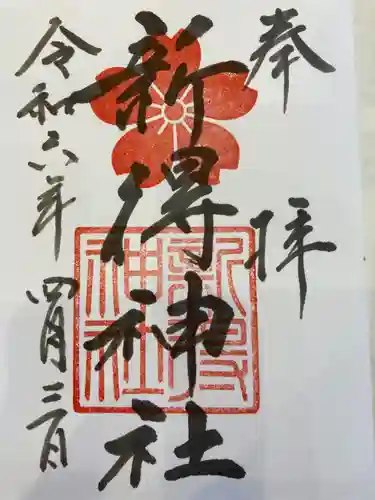 奉拝
新得神社
令和六年四月三日
新得神社